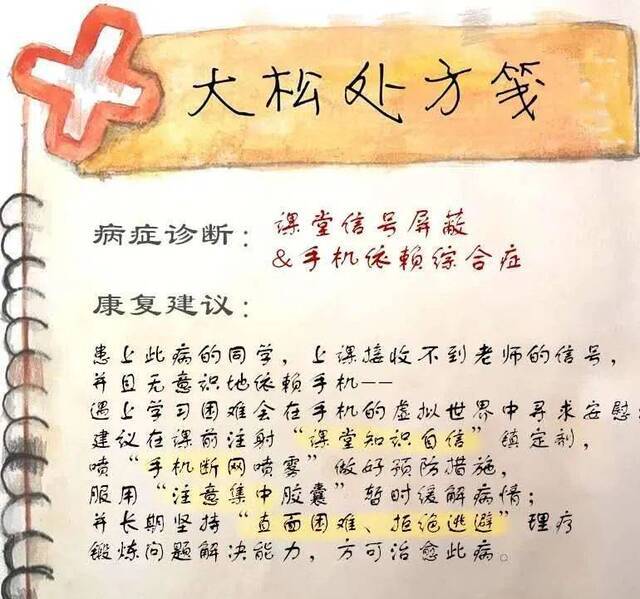 大松处方笺
病症诊断：课堂信号屏蔽
&手机依赖综合症
康复建议：
患上此病的同学，上课接收不到老师的信号，
并且无意识地依赖手机——
遇上学习困难会在手机的虚拟世界中寻求安慰
建议在课前注射“课堂知识自信”镇定剂，
喷“手机断网喷雾”做好预防措施，
服用“注意集中胶囊”暂时缓解病情；
并长期坚持“直面困难、拒绝逃避”理疗
锻炼问题解决能力，方可治愈此病。